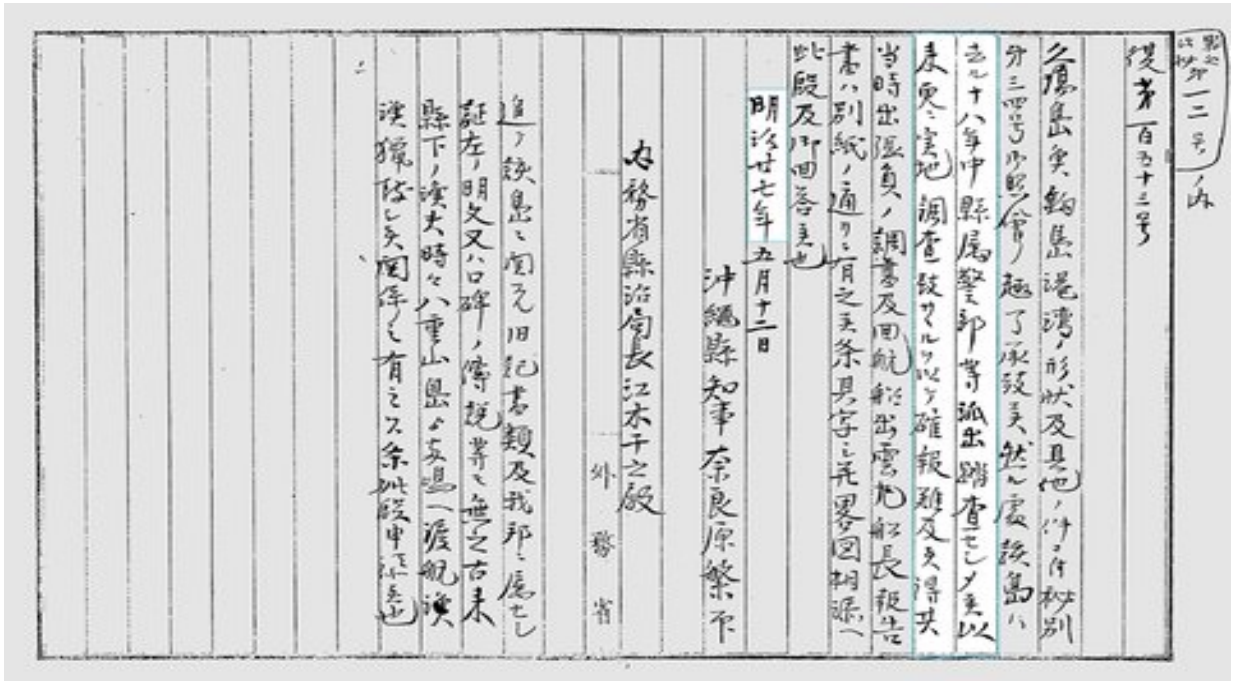 県乙
次秘第一二号ノ内
復第百五十三号
久場島魚釣島港湾ノ形状及其他ノ件ニ付秘別
第三四号御照會ノ趣了承致候然ル處該島ハ
去ル十八年中縣属警部等派出踏査セシメ候以
来更ニ実地調査致サヽルヲ以テ確報難及候得共
当時出張員ノ調書及回航船出雲丸船長報告
書ハ別紙ノ通リニ有之候条其写ニ并畧図相添ヘ
此段及御回答候也
明治廿七年五月十二日
沖縄縣知事奈良原繁
内務省縣治局長江木千之殿
追テ該島ニ関スル旧記書類及我邦ニ属セシ
証左ノ明文又ハ口碑ノ傳説等モ無之古来
縣下ノ漁夫時々八重山島ヨリ両島ヘ渡航漁
漁猟致シ候関係ノミ有之候条此段申添候也
外務省